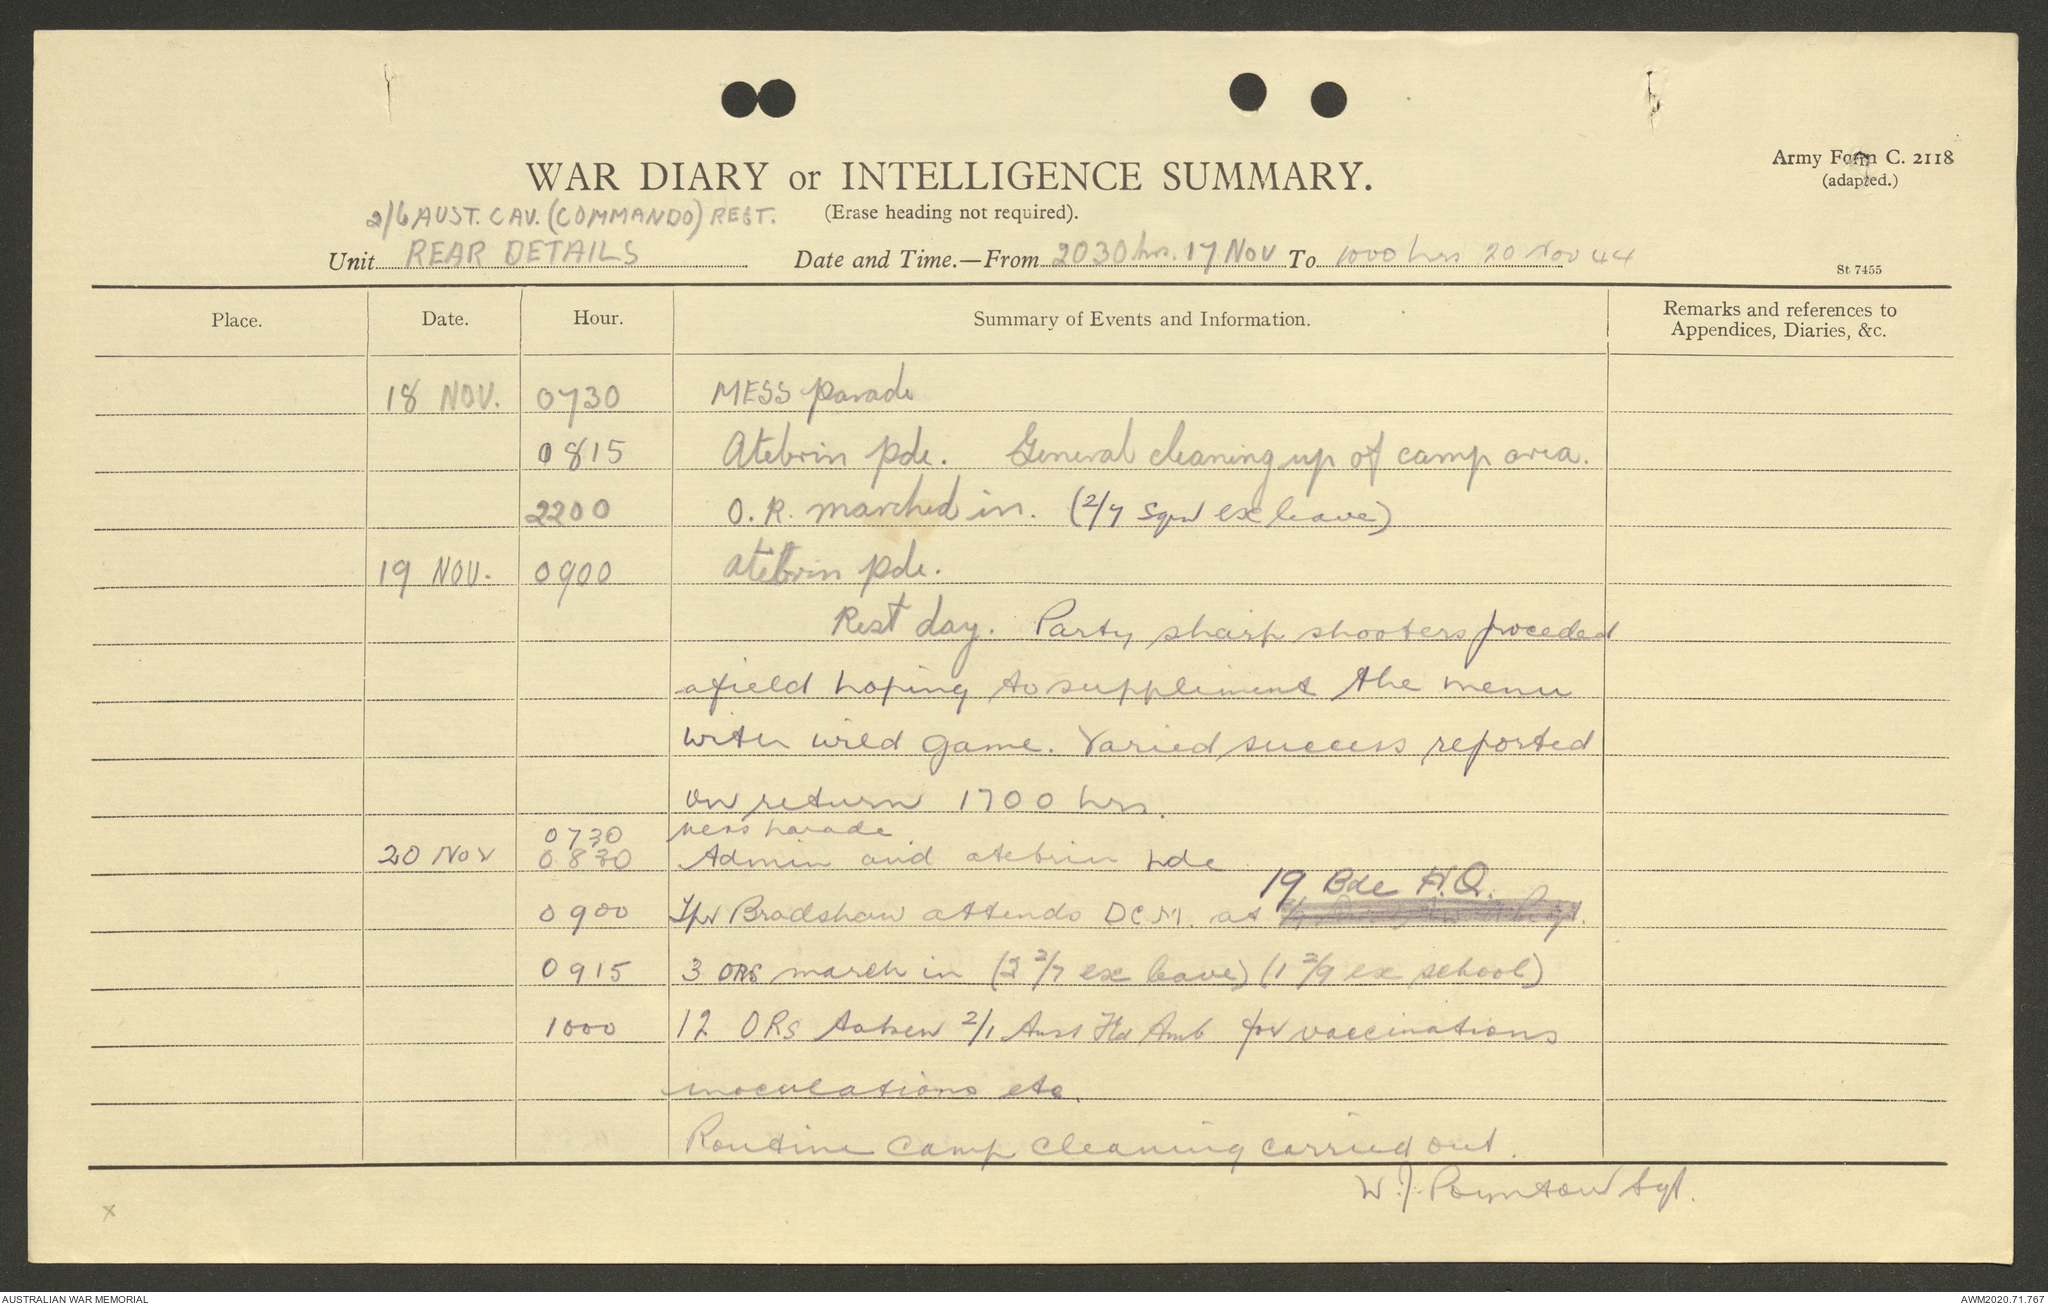 Army Form C. 2118
(adapted.)
WAR DIARY or INTELLIGENCE SUMMARY.
(Erase heading not required).
2/6 AUST. CAV. (COMMANDO) REGT.
Unit REAR DETAILS Date and Time.—From 2030 hrs. 17 NOV To 1000 hrs 20 Nov 44
St 7455
Place. Date. Hour. Summary of Events and Information. Remarks and references to
Appendices, Diaries, &c.
18 NOV. 0730 MESS parade
0815 Atebrin pde. General cleaning up of camp area.
2200 O.R. marched in. (2/7 Sqn ex leave)
19 NOV. 0900 atebrin pde.
Rest day. Party sharp shooters proceded
afield hoping to suppliment the menu
with wild game. Varied success reported
on return 1700 hrs.
0730 Mess parade
20 Nov 0830 Admin and atebrin pde
19 Bde H.Q.
0900 Tpr Bradshaw attends DCM. at
0915 3 ORS march in (2 2/7 ex leave) (1 2/9 ex school)
1000 12 ORS taken 2/1 Aust Fld Amb for vaccinations
inoculations etc.
Routine camp cleaning carried out.
W.J. Poynton Sgt.
x
AUSTRALIAN WAR MEMORIAL AWM2020.71.767